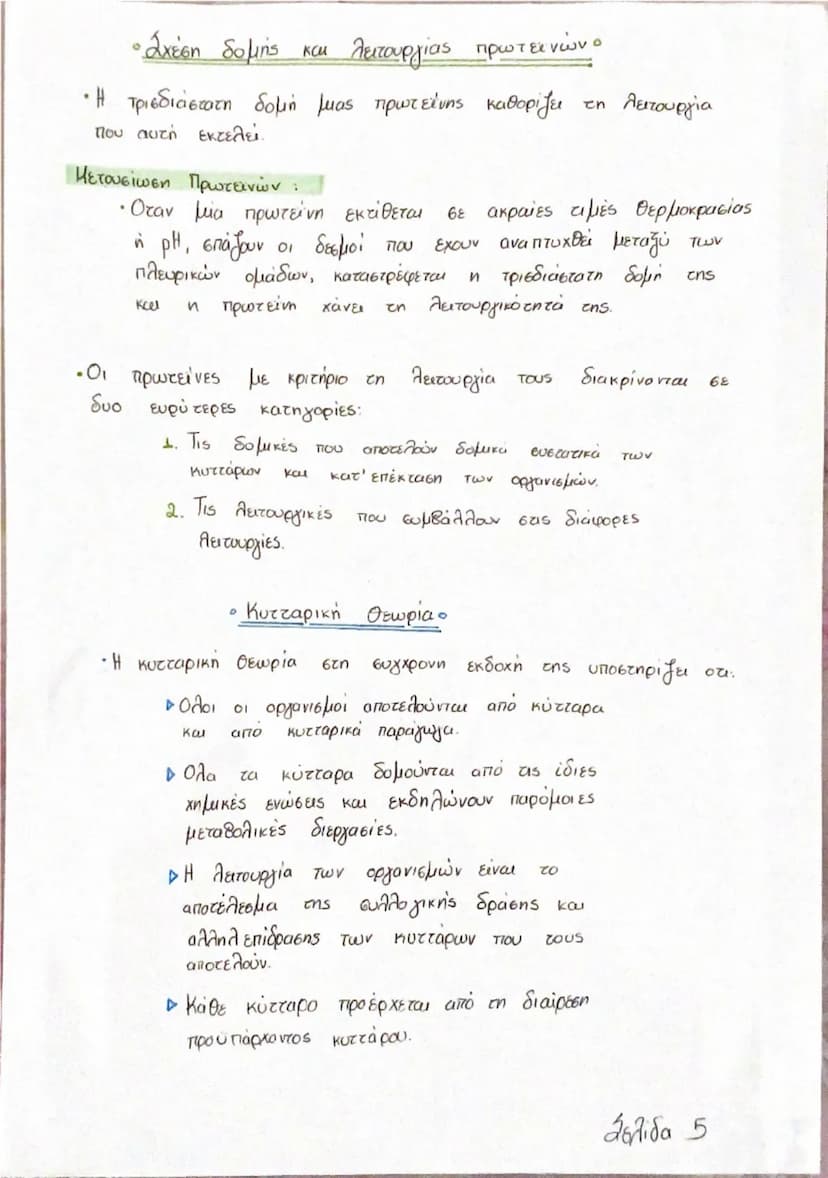 Σχέση δομής και λειτουργίας πρωτεινών
• Η τρισδιάστατη δομή μιας πρωτείνης καθορίζει τη λειτουργία
που αυτή εκτελεί.
Μετουσίωση Πρωτεινών :
• Όταν μια πρωτείνη εκτίθεται σε ακραίες τιμές θερμοκρασίας
ή pH, σπάζουν οι δεσμοί που έχουν αναπτυχθεί μεταξύ των
πλευρικών ομάδων, καταστρέφεται η τρισδιάστατη δομή της
και η πρωτείνη χάνει τη λειτουργικότητά της.
• Οι πρωτείνες με κριτήριο τη λειτουργία τους διακρίνονται σε
δυο ευρύτερες κατηγορίες:
1. Τις δομικές που αποτελούν δομικά συστατικά των
κυττάρων και κατ' επέκταση των οργανισμών.
2. Τις λειτουργικές που συμβάλλουν στις διάφορες
λειτουργίες.
Κυτταρική Θεωρία
• Η κυτταρική θεωρία στη σύγχρονη εκδοχή της υποστηρίζει οτι:
▷ Όλοι οι οργανισμοί αποτελούνται από κύτταρα
και από κυτταρικά παράγωγα.
▷ Όλα τα κύτταρα δομούνται από τις ίδιες
χημικές ενώσεις και εκδηλώνουν παρόμοιες
μεταβολικές διεργασίες.
▷ Η λειτουργία των οργανισμών είναι το
αποτέλεσμα της συλλογικής δράσης και
αλληλεπίδρασης των κυττάρων που τους
αποτελούν.
▷ Κάθε κύτταρο προέρχεται από τη διαίρεση
προϋπάρχοντος κυττάρου.
Σελίδα 5